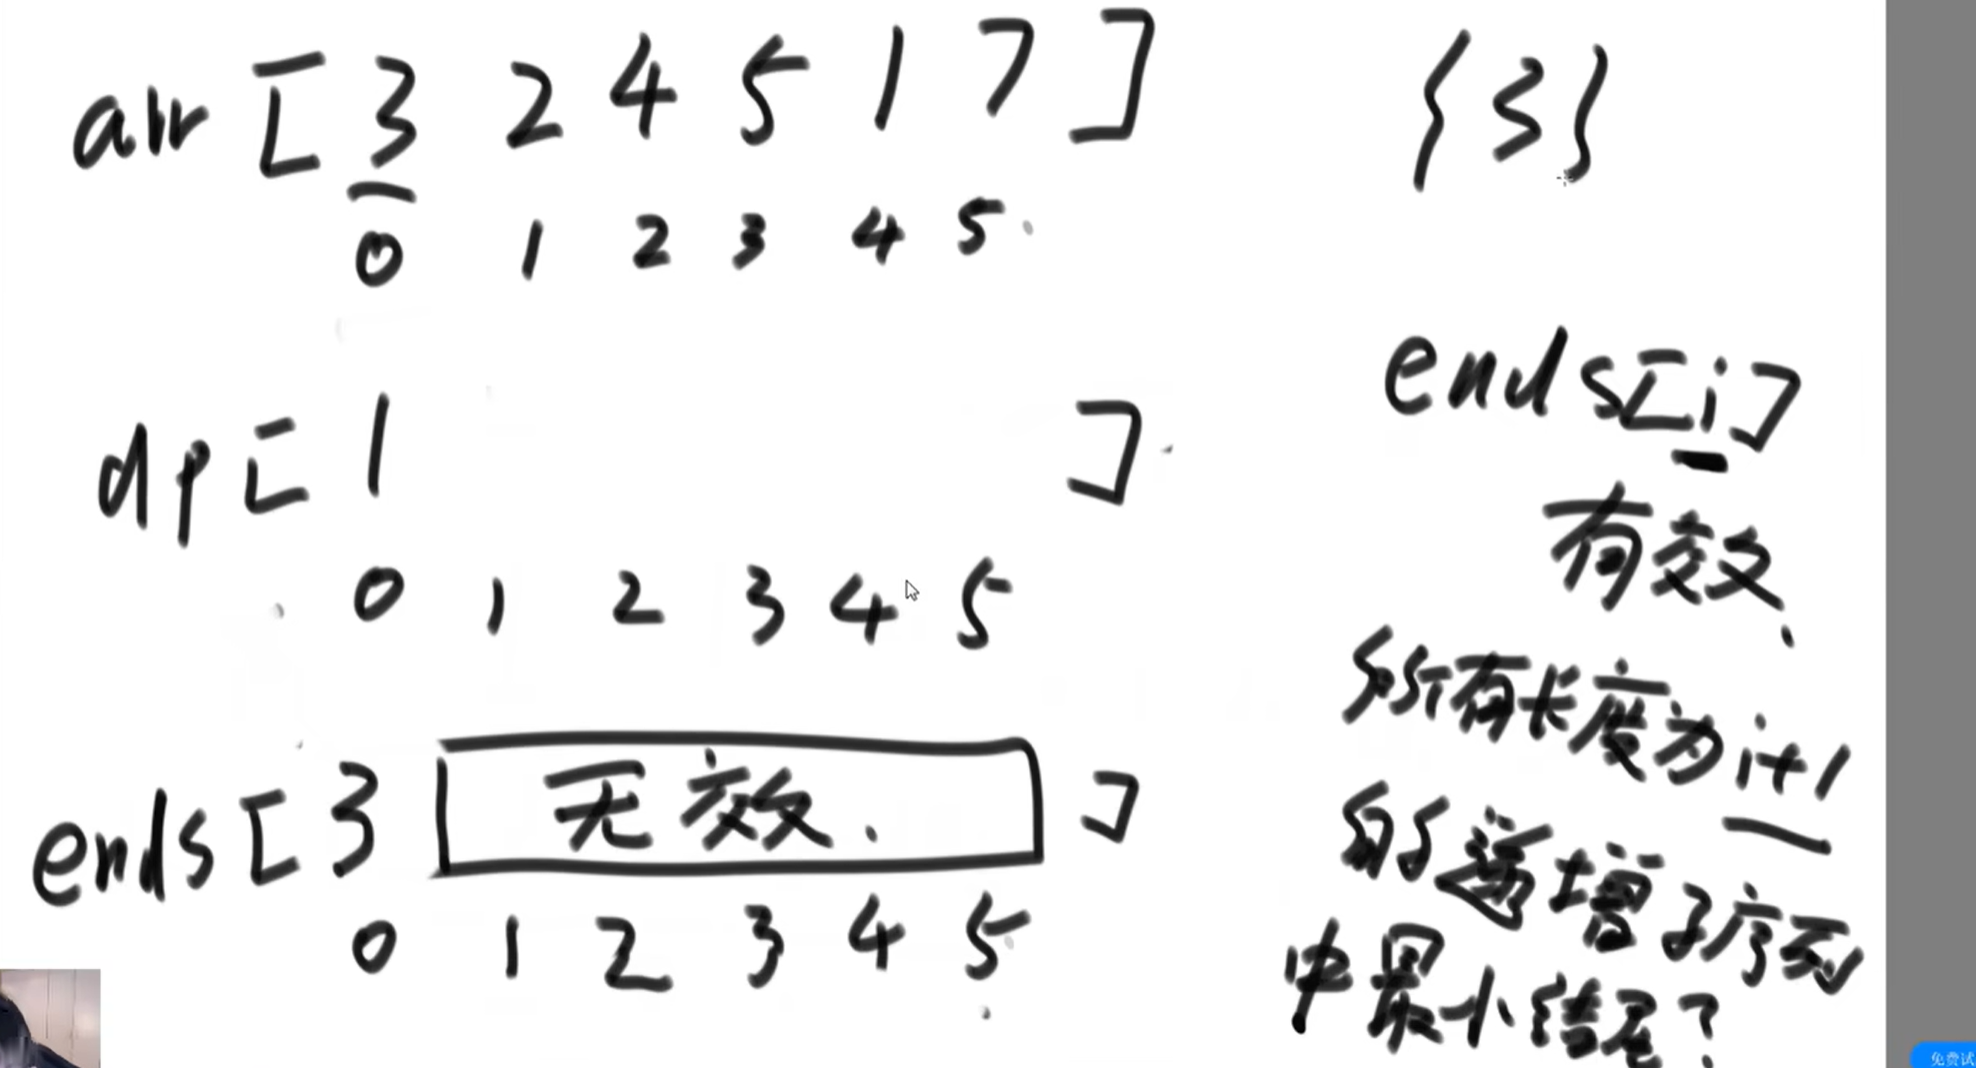 arr [ 3 2 4 5 1 7 ]
0 1 2 3 4 5
{3}
dp [ 1 ]
0 1 2 3 4 5
ends [ 3 无效. ]
0 1 2 3 4 5
ends[i]
有效.
所有长度为i+1
的递增子序列
中最小结尾?
免费试